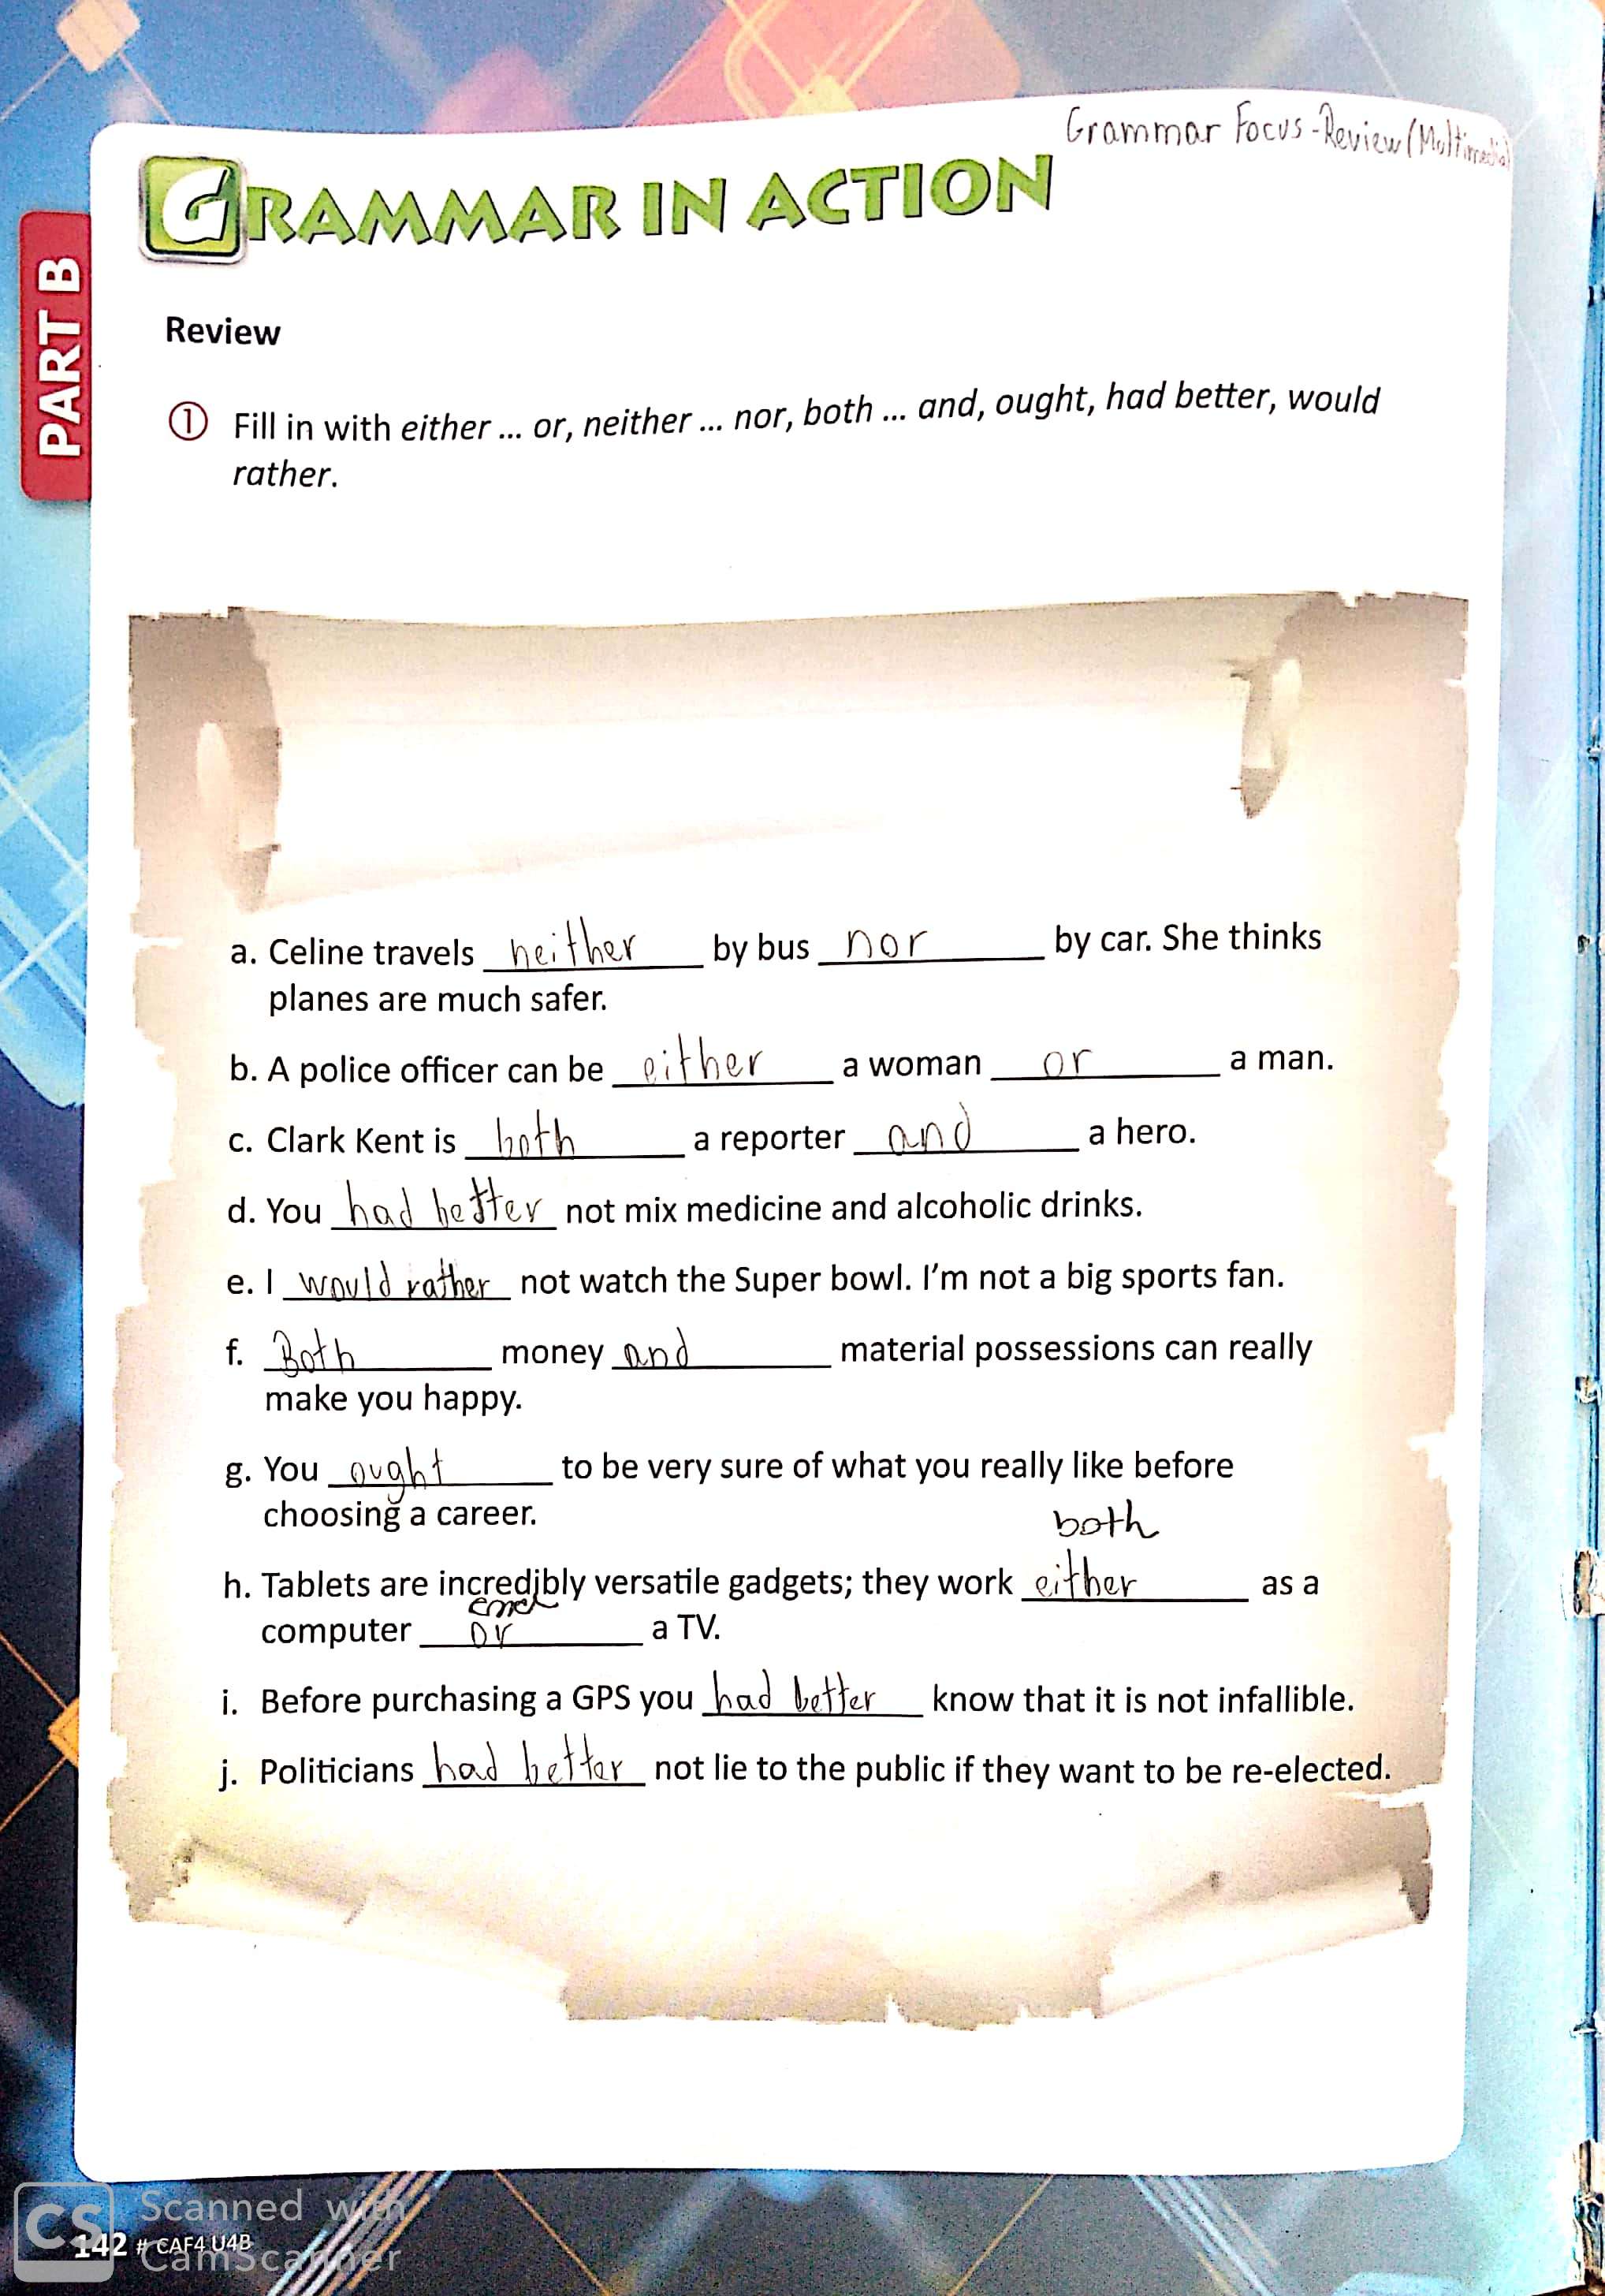 Grammar Focus - Review (Multimedia)
GRAMMAR IN ACTION
PART B
Review
1 Fill in with either ... or, neither ... nor, both ... and, ought, had better, would
rather.
a. Celine travels neither by bus nor by car. She thinks
planes are much safer.
b. A police officer can be either a woman or a man.
c. Clark Kent is both a reporter and a hero.
d. You had better not mix medicine and alcoholic drinks.
e. I would rather not watch the Super bowl. I'm not a big sports fan.
f. Both money and material possessions can really
make you happy.
g. You ought to be very sure of what you really like before
choosing a career.
both
h. Tablets are incredibly versatile gadgets; they work either as a
and
computer or a TV.
i. Before purchasing a GPS you had better know that it is not infallible.
j. Politicians had better not lie to the public if they want to be re-elected.
CS Scanned with
CamScanner
142 # CAF4 U4B